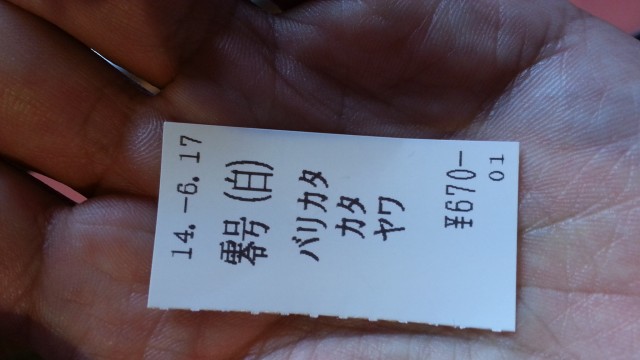 14.-6.17
零号(白)
バリカタ
カタ
ヤワ
¥670-
01